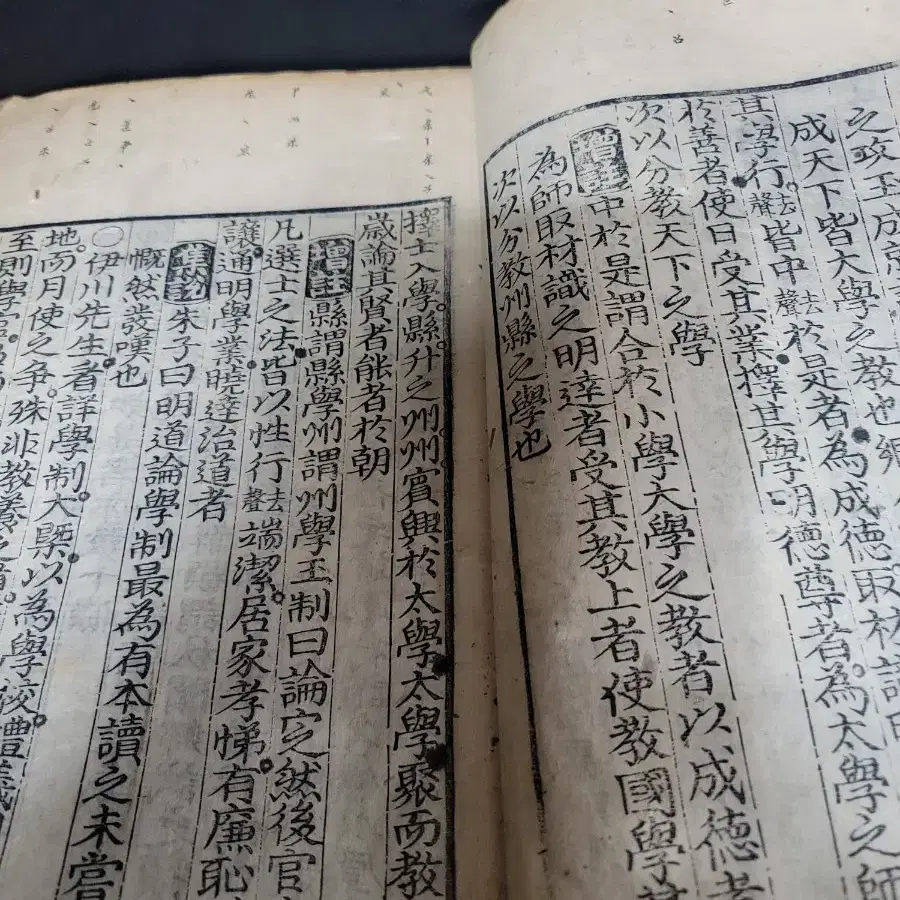 之政王成
成天下皆大學之教也鄉
其學行去聲皆中去聲於是者為成德取材識明
於善者使日受其業擇其學明德尊者為太學之師
次以分教天下之學
增註中於是謂合於小學大學之教者以成德者
為師取材識之明達者受其教上者使教國學其
次以分教州縣之學也
擇士入學縣升之州州賓興於太學太學聚而教
歲論其賢者能者於朝
增註縣謂縣學州謂州學王制曰論定然後官
凡選士之法皆以性行去聲端潔居家孝悌有廉恥
讓通明學業曉達治道者
集說朱子曰明道論學制最為有本讀之未嘗
慨然發嘆也
○伊川先生看詳學制大槩以為學校禮義
地而月使之爭殊非教養之道
至則學官